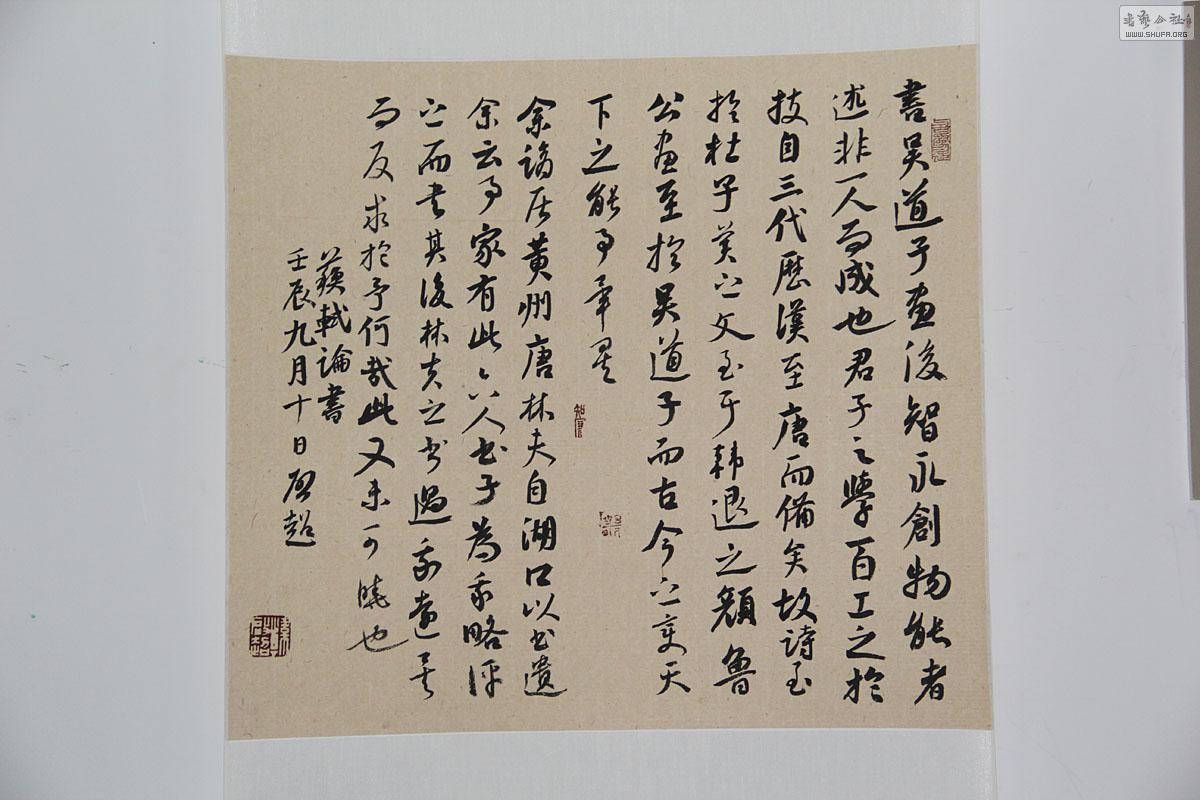 書吳道子畫後智永創物能者
述非一人而成也君子之學百工之於
技自三代歷漢至唐而備矣故詩至
於杜子美之文至于韓退之顏魯
公畫至於吳道子而古今之變天
下之能事畢矣
余謫居黃州唐林夫自湖口以書遺
余云吾家有此六人書子為我略評
之而書其後林夫之書過我遠矣
而反求於予何哉此又未可曉也
蘇軾論書
壬辰九月十日啟超
書藝公社
WWW.SHUFA.ORG